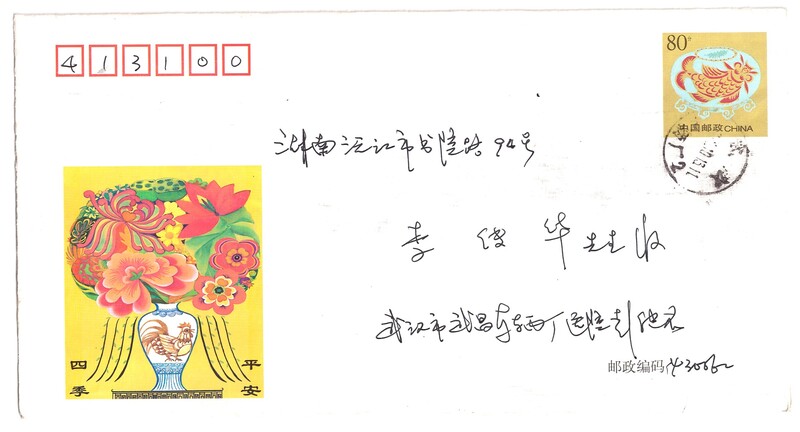 413100
80分
中国邮政 CHINA
湖南沅江市书院路94号
李俊华先生收
武汉市武昌
邮政编码 430062
四季平安